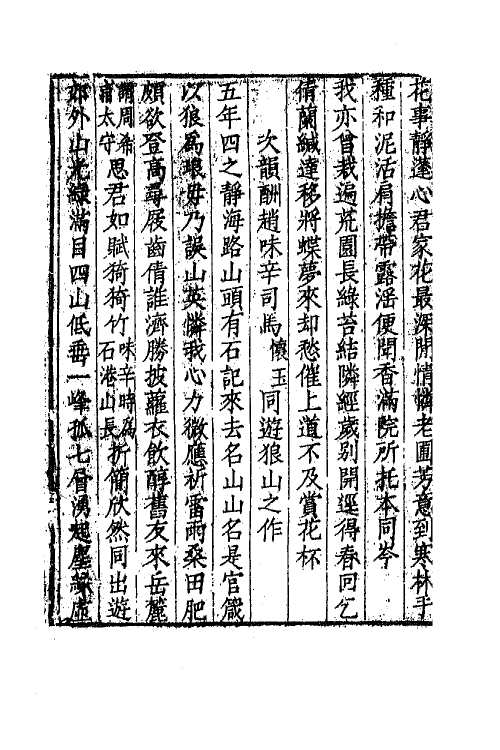 花事靜蓬心君家花最深閒情憐老圃芳意到寒林手
種和泥活肩擔帶露滛便聞香滿院所托本同岑
我亦曾栽遍荒園長綠苔結隣經歲别開逕得春回乞
倩蘭緘達移將蝶夢來却愁催上道不及賞花杯
次韻酬趙味辛司馬懷玉同遊狼山之作
五年四之靜海路山頭有石記來去名山山名是官箴
以狼爲琅毋乃誤山英憐我心力微應祈雷雨桑田肥
頗欲登高尋屐齒倩誰濟勝披蘿衣飲醇舊友來岳麓
謂周希甫太守思君如賦猗猗竹味辛時爲石港山長折簡欣然同出遊
郊外山光綠滿目四山低垂一峰孤七層湧起塵緣虛